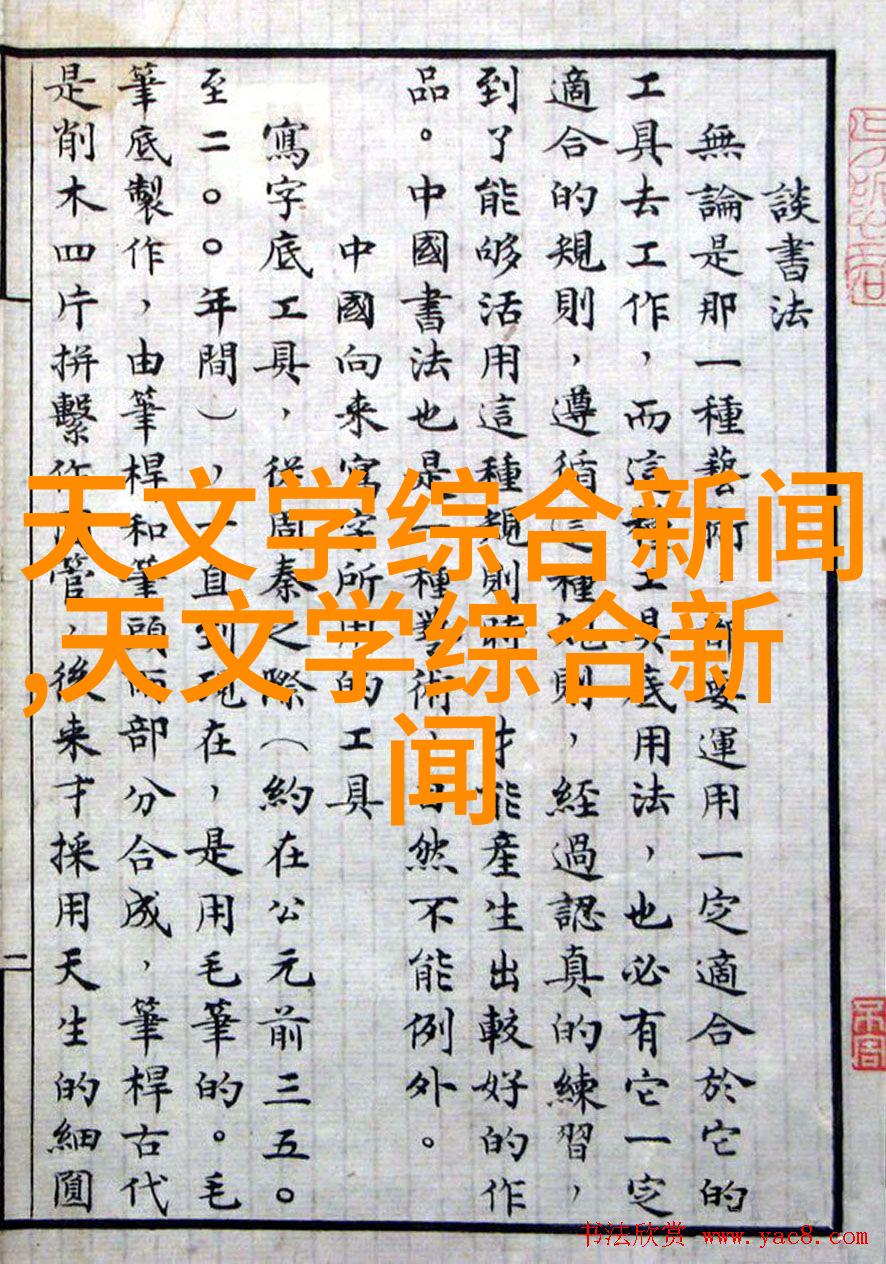 天文学综合新闻
,天文学综合新
闻
談書法
無論是那一種藝術,都要運用一定適合於它的
工具去工作,而這種工具底用法,也必有它一定
適合的規則,遵循這種規則,經過認真的練習,
到了能够活用這種規則時,才能產生出較好的作
品。中國書法也是一種藝術,自然不能例外。
中國向来寫字所用的工具
寫字底工具,從周秦之際(約在公元前三五〇
至二〇〇年間),一直到現在,是用毛筆的。毛
筆底製作,由筆桿和筆頭兩部分合成,筆桿古代
是削木四片拼繫作管,後来才採用天生的細圓
二
书法欣赏 www.yac8.com